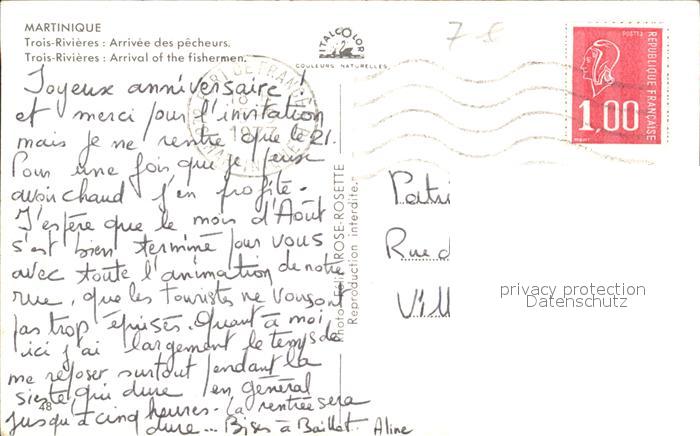 MARTINIQUE
Trois-Rivières : Arrivée des pêcheurs.
Trois-Rivières : Arrival of the fishermen.
ITALCOLOR
COULEURS NATURELLES
POSTES
REPUBLIQUE FRANÇAISE
1,00
FORT DE FRANCE
MARTINIQUE
Joyeux anniversaire !
et merci pour l'invitation
mais je ne rentre que le 21.
Pour une fois que je peux
avoir chaud j'en profite.
J'espère que le mois d'Août
s'est bien terminé pour vous
avec toute l'animation de notre
rue, que les touristes ne vous ont
pas trop épuisés. Quant à moi
ici j'ai largement le temps de
me reposer surtout pendant la
sieste qui dure en général
jusqu'à cinq heures. La rentrée sera
dure... Bises à Baillot. Aline
48
ROSE-ROSETTE
Reproduction interdite.
Patri
Rue d
Vill
privacy protection
Datenschutz